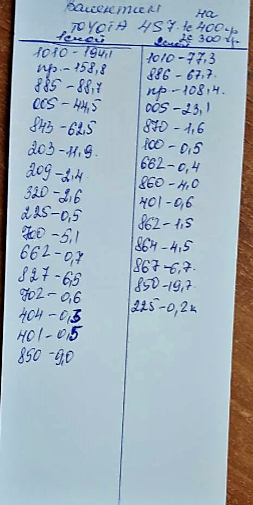 Валентин на
TOYOTA 457. 1с 400гр
2с 300гр.
1слой
1010-194,1
пр.-158,8
885-88,7
005-44,5
843-62,5
203-11,9.
209-2,4.
320-2,6
225-0,5
700-5,1
662-0,7
827-6,5
702-0,6
404-0,3
401-0,5
850-9,0
2слой
1010-77,3
886-67,7.
пр-108,4.
005-23,1
870-1,6
100-0,5
662-0,4
860-4,0
401-0,6
862-1,5
864-4,5
867-6,7.
850-19,7.
225-0,2к